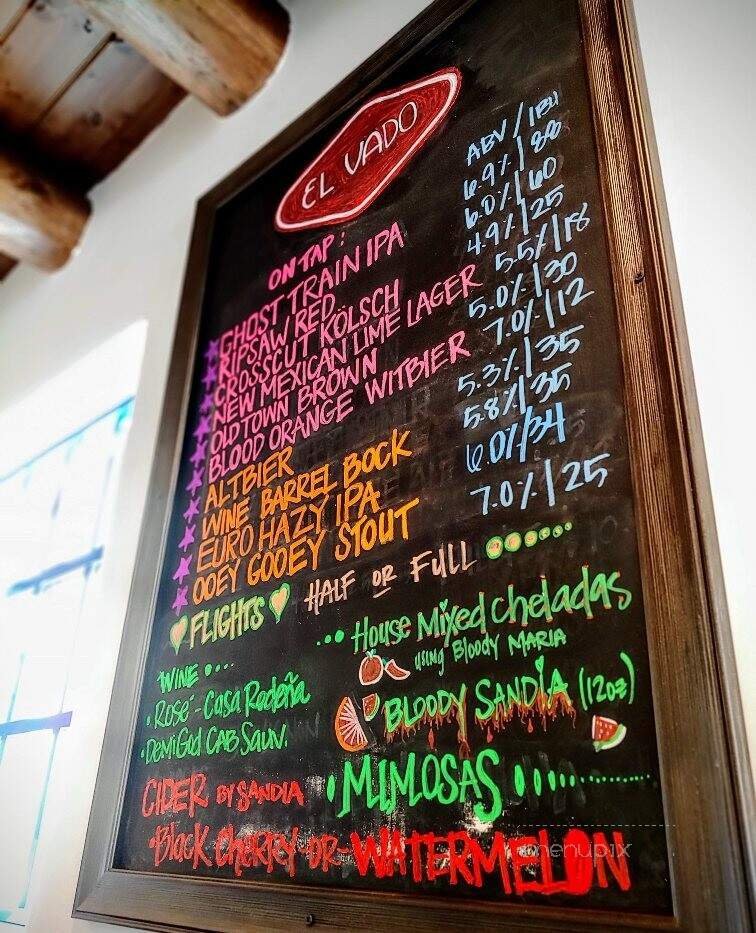 EL VADO
ON TAP: ABV / IBU
GHOST TRAIN IPA 6.9% | 88
RIPSAW RED 6.0% | 60
CROSSCUT KÖLSCH 4.9% | 25
NEW MEXICAN LIME LAGER 5.5% | 18
OLD TOWN BROWN 5.0% | 30
BLOOD ORANGE WITBIER 7.0% | 12
ALTBIER 5.3% | 35
WINE BARREL BOCK 5.8% | 35
EURO HAZY IPA 6.0% / 34
OOEY GOOEY STOUT 7.0% | 25
FLIGHTS HALF OR FULL
House Mixed Cheladas
using Bloody MARIA
WINE
• Rosé - Casa Rodeña
BLOODY SANDIA (12oz)
• DemiGod CAB SAUV.
CIDER BY SANDIA
• MIMOSAS
• Black CHERRY -OR- WATERMELON
menupix